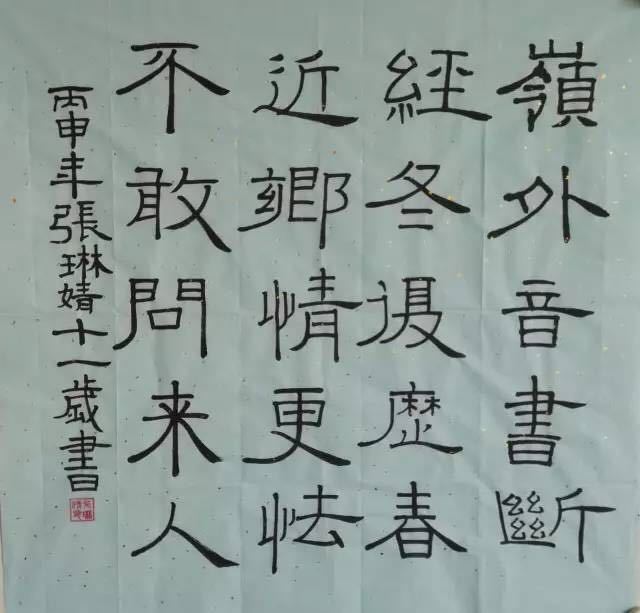 嶺外音書斷
經冬復歷春
近鄉情更怯
不敢問来人
丙申年張琳婧十一歲書